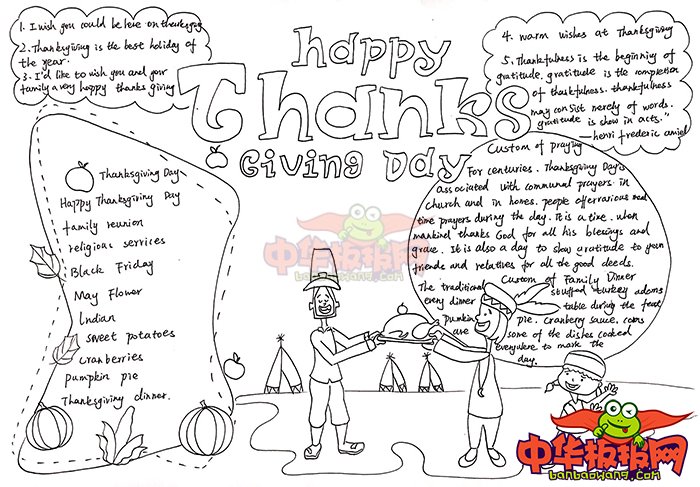 1. I wish you could be here on thanksgiving
2. Thanksgiving is the best holiday of
the year.
3. I'd like to wish you and your
family a very happy thanks giving
happy
Thanks
Giving Day
4. warm wishes at Thanksgiving
5. Thankfulness is the beginnig of
gratitude. gratitude is the completion
of thaskfulness. thaskfulness
may consist nerely of words.
gratitude is show in acts."
—henri frederic amiel
Thanksgiving Day
Happy Thanksgiving Day
family reunion
religious services
Black Friday
May Flower
Indian
sweet potatoes
cranberries
pumpkin pie
Thanksgiving dinner.
Custom of praying
For centuries. Thanksgiving Day is
associated with communal prayers in
church and in homes. people offer various meal
time prayers during the day. It is a time. when
mankind thanks God for all his blessings and
grace. It is also a day to show gratitude to
friends and relatives for all the good deeds.
Custom of Family Dinner
The traditional stuffed turkey adorns
every dinner table during the feast
pumkin pie. cranberry sauce. corns
are some of the dishes cooked
everywhere to mark the
day.
中华板报网
banbaowang.com
中华板报网
banbaowang.com